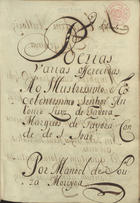 Poezias
varias offerecidas
Ao Illustrissimo e Ex
celentissimo Senhor An
tonio Luis de Tavora
Marques de Tavora Con
de de S. Joaõ
Por Manoel de Sou
za Moreyra